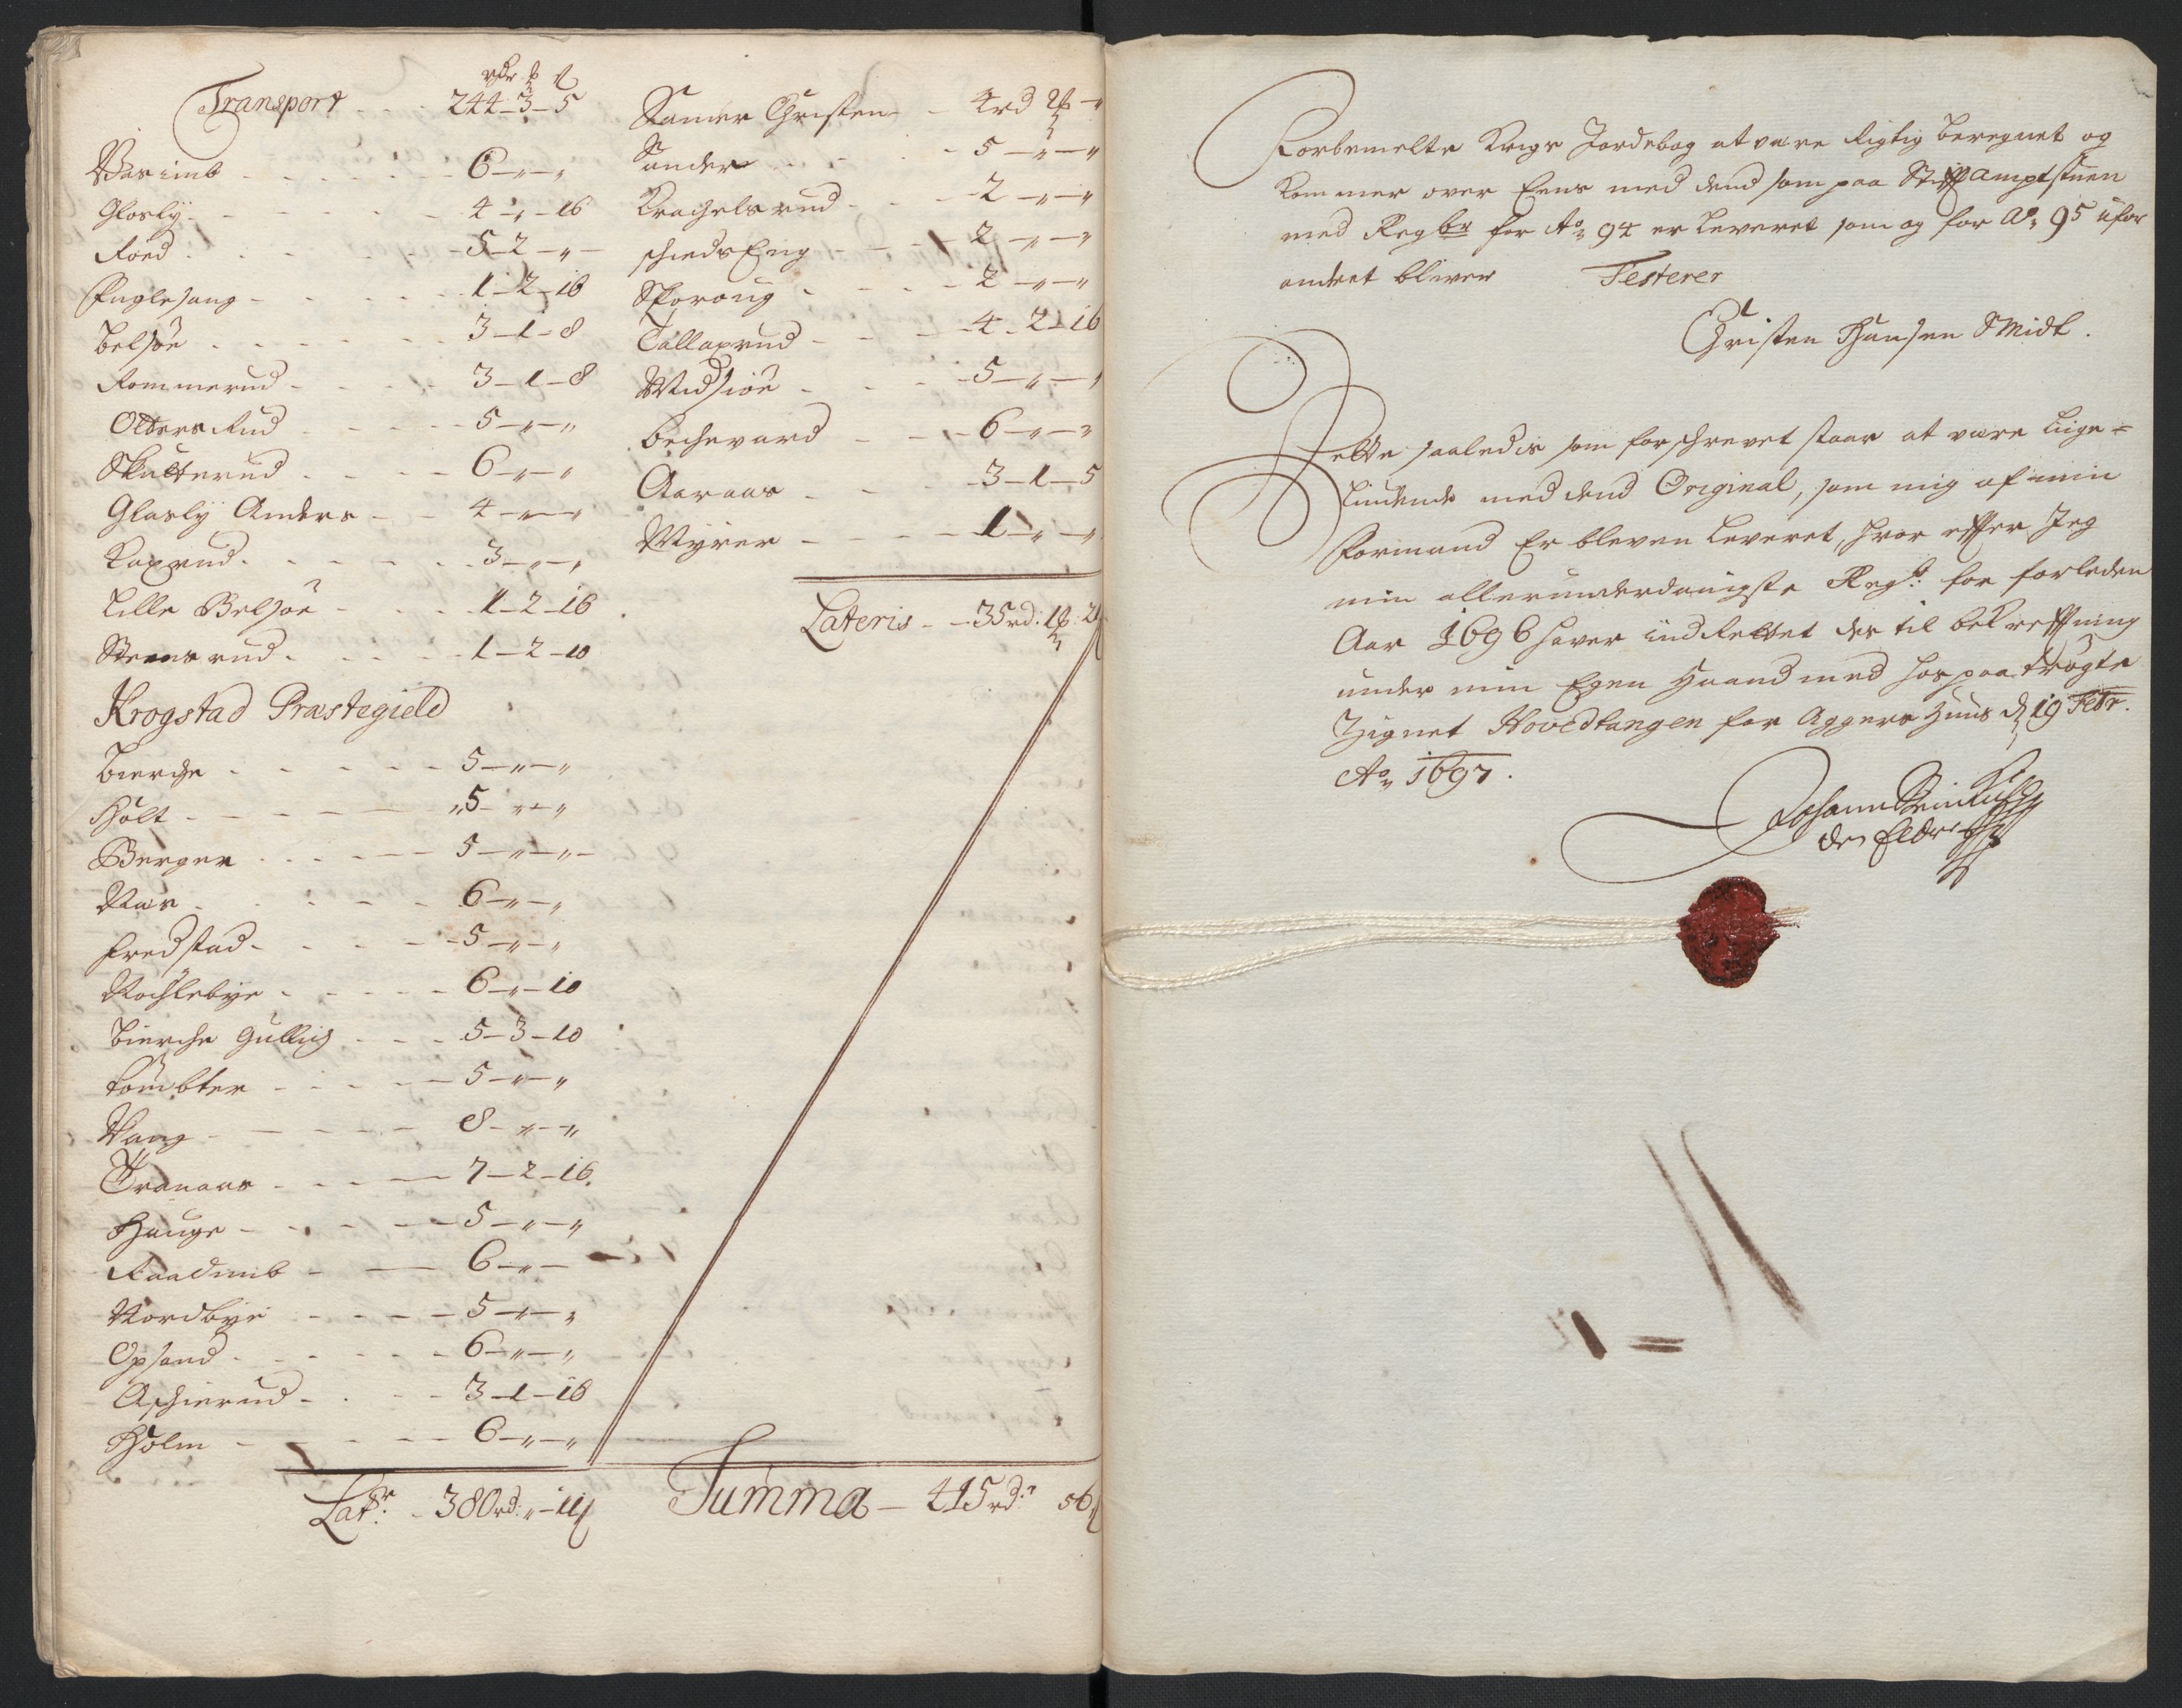 rdr ß
Transport - - 244 - 3 - 5
Wasimb - - - - - 6 - „ - „
Glosly - - - - - 4 - „ - 16
Roed - - - - - 5 - 2 - „ -
Fuglesang - - - - - 1 - 2 - 16
Belsöe - - - - - 3 - 1 - 8
Rommerud - - - - 3 - 1 - 8
Otters Rud - - - - 5 - „ - „
Skutterud - - - - 6 - „ - „
Glosly Anders - - 4 - „ - „
Kaxrud - - - - - 3 - „ - „
Lille Belsöe - - - 1 - 2 - 16
Steens rud - - - - 1 - 2 - 10
Krogstad Præstegield
Bierche - - - - - 5 - „ - „
Holt - - - - - „ 5 - „ - „
Berger - - - - - 5 - „ - „ -
Ris - - - - - 6 - „ - „
Fredstad - - - - 5 - „ - „
Rochlebye - - - - 6 - „ - 10
Bierche Gullich - - - 5 - 3 - 10
Tombter - - - - 5 - „ - „
Wang - - - - - 8 - „ - „
Tranaas - - - - 7 - 2 - 16
Hauge - - - - - 5 - „ - „
Raadimb - - - 6 - „ -
Nordbye - - - - 5 - „ - „
Opsand - - - - - 6 - „ - „
Aschierud - - - - 3 - 1 - 16
Holm - - - - - 6 - „ - „
Latr: - 380 rd: „ - 11 ß
Sander Christen - - 4 rd 2 ß - „
Sander - - - - 5 - „ - „
Kragels rud - - - 2 - „ - „
schieds Eng - - - 2 - „ - „
Skoroug - - - - 2 - „ - „
Tallaxrud - - - 4 - 2 - 16
Midsiöe - - - - 5 - „ - „
Bechevard - - - 6 - „ - „
Aaraas - - - - 3 - 1 - 5
Myrer - - - - 1 - „ - „
Lateris - - 35 rd: 1 ß: 21
Summa - 415 rd: 56
Forbemelte Krigs Jordebog at være Rigtig beregnet og
kommer over Eens med dend som paa Stifftamptstuen
med Regbr for Ao 94 er leveret som og for Ao 95 ufor
andret bliver Testerer
Christen Hansen Smidt.
Dette saaledis som forschrevet staar at være liige=
liudende med dend Original, som mig af min
Formand Er bleven leveret, hvor effter Jeg
min allerunderdanigste Regsk: for forleden
Aar 1696 haver indRettet des til bekrefftning
under min Egen Haand med hos paatrögte
Zignet Hovedtangen for Aggers Huus d 19 Febr.
Ao 1697.
Johann